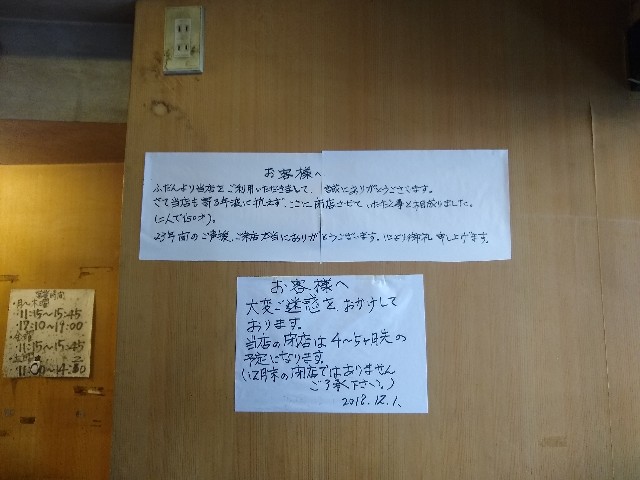 お客様へ
ふだんより当店をご利用いただきまして、誠にありがとうございます。
さて当店も寄る年波に抗えず、ここに閉店させていただく事と相成りました。
(二人で150才)。
23年間のご声援、ご来店本当にありがとうございます。心より御礼申し上げます。
お客様へ
大変ご迷惑をおかけして
おります。
当店の閉店は4〜5ヶ月先の
予定になります。
(12月末の閉店ではありません
ご了承下さい。)
2018.12.1、
営業時間
・月〜木曜
11:15〜15:45
17:10〜19:00
・金曜
11:15〜15:45